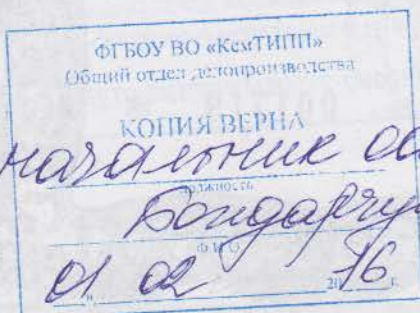 ФГБОУ ВО «КемТИПП»
Общий отдел делопроизводства
КОПИЯ ВЕРНА
начальник
должность
Бондарчу
Ф.И.О.
„01" 02 2016 г.